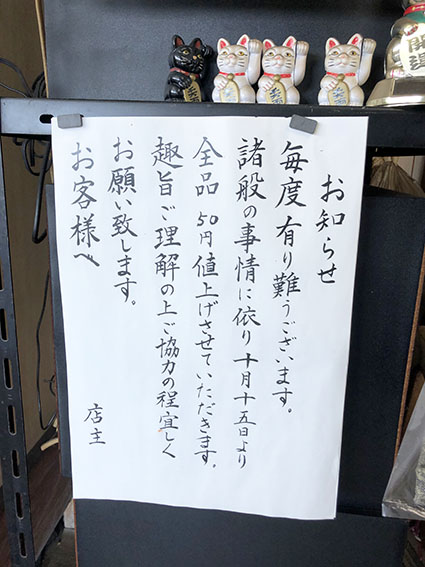 お知らせ
毎度有り難うございます。
諸般の事情に依り十月十五日より
全品50円値上げさせていただきます。
趣旨ご理解の上ご協力の程宜しく
お願い致します。
お客様へ
店主